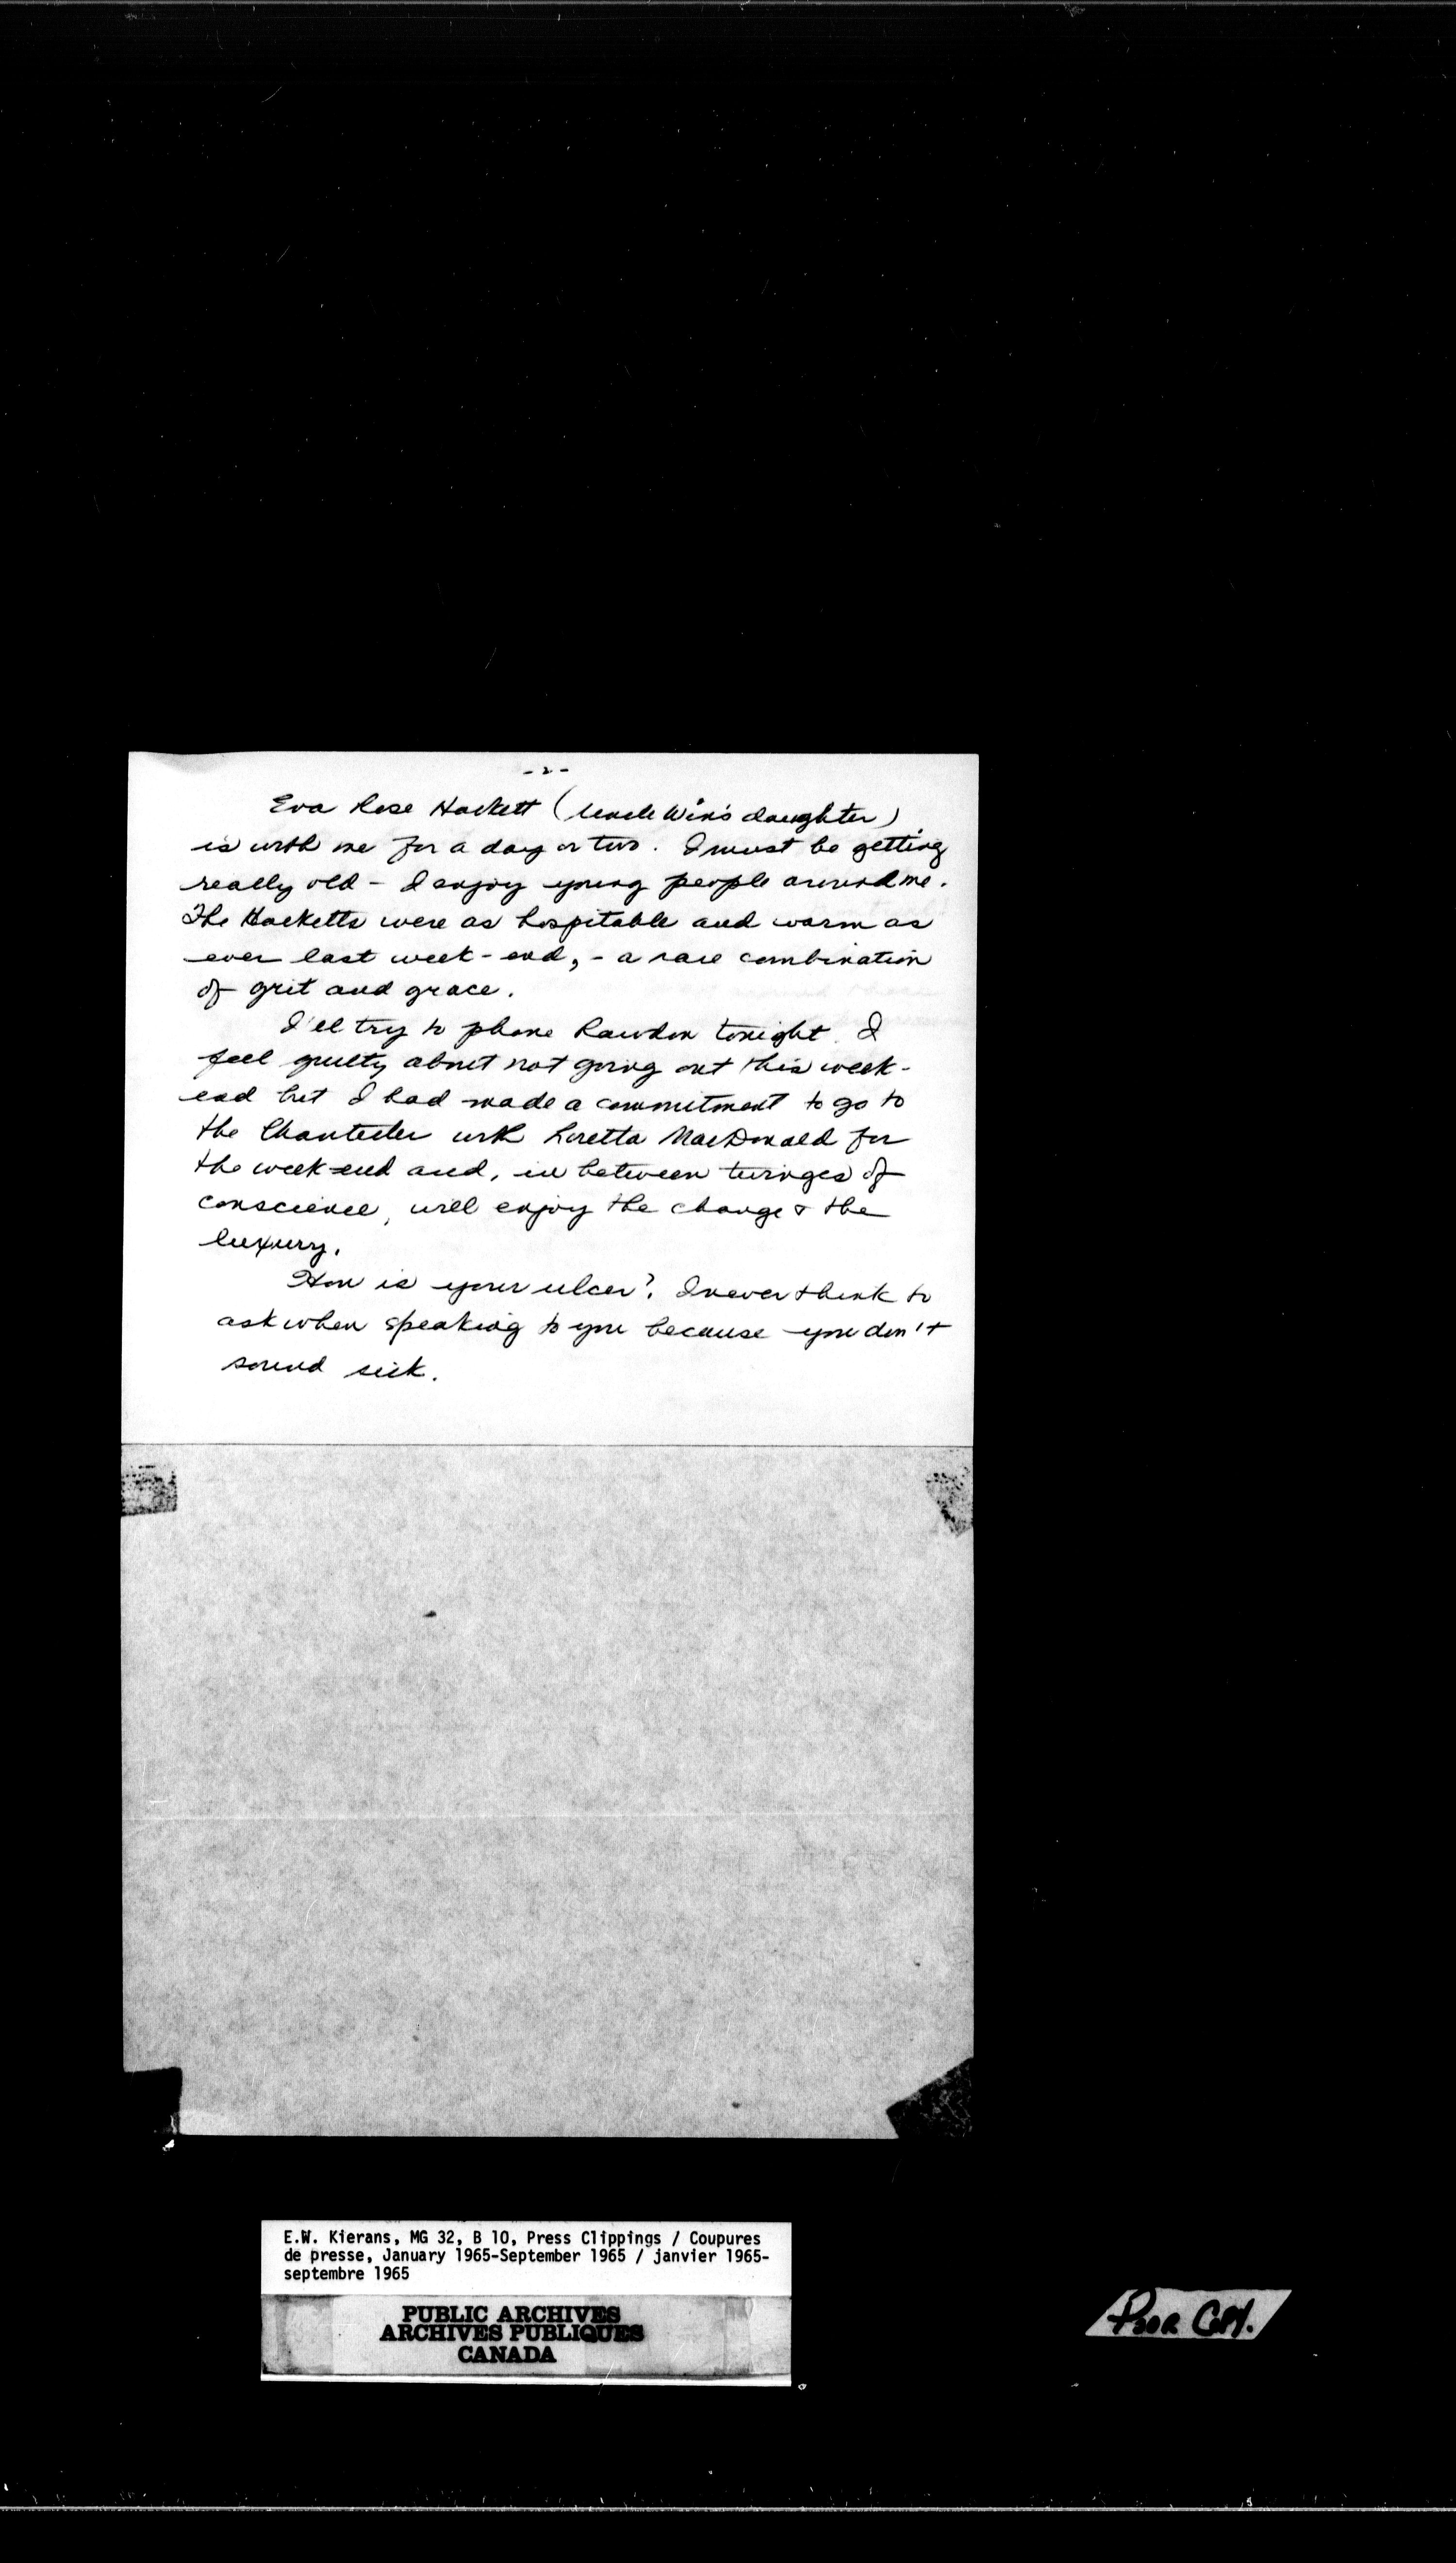 - 2 -
Eva Rose Hackett (Uncle Win's daughter)
is with me for a day or two. I must be getting
really old - I enjoy young people around me.
The Hacketts were as hospitable and warm as
ever last week-end, - a rare combination
of grit and grace.
I'll try to phone Rawdon tonight. I
feel guilty about not going out this week-
end but I had made a commitment to go to
the Chantecler with Loretta MacDonald for
the week-end and, in between twinges of
conscience, will enjoy the change & the
luxury.
How is your ulcer? I never think to
ask when speaking to you because you don't
sound sick.
E.W. Kierans, MG 32, B 10, Press Clippings / Coupures
de presse, January 1965-September 1965 / janvier 1965-
septembre 1965
PUBLIC ARCHIVES
ARCHIVES PUBLIQUES
CANADA
POOR COPY.